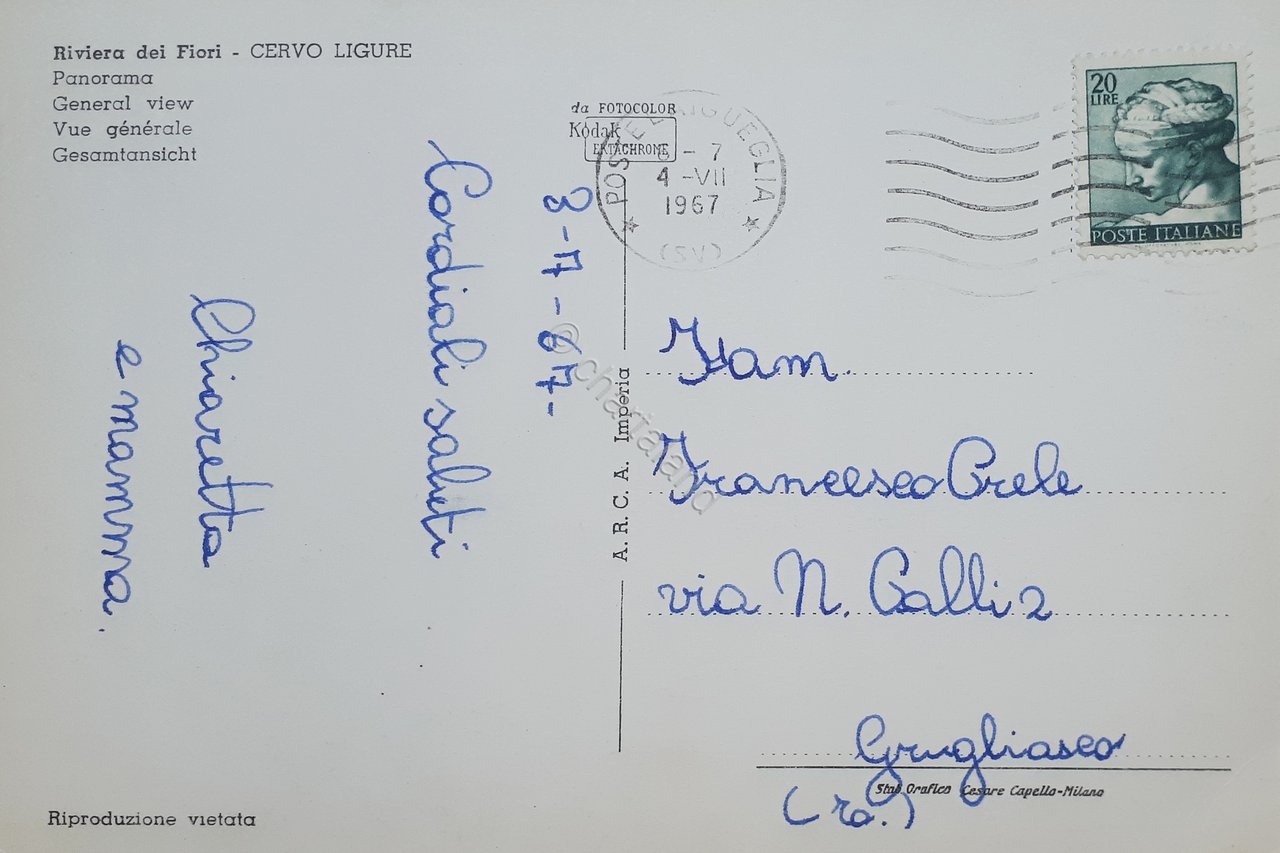 Riviera dei Fiori - CERVO LIGURE
Panorama
General view
Vue générale
Gesamtansicht
da FOTOCOLOR
Kodak
EKTACHROME
POSTE LAIGUEGLIA
8 - 7
4 - VII
1967
(SV)
20
LIRE
POSTE ITALIANE
3-7-67-
Cordiali saluti
Chiaretta
e mamma.
A. R. C. A. Imperia
© chartaland
Fam.
Francesco Crele
via N. Galli 2
Grugliasco
(To.)
Stab. Grafico Cesare Capello-Milano
Riproduzione vietata